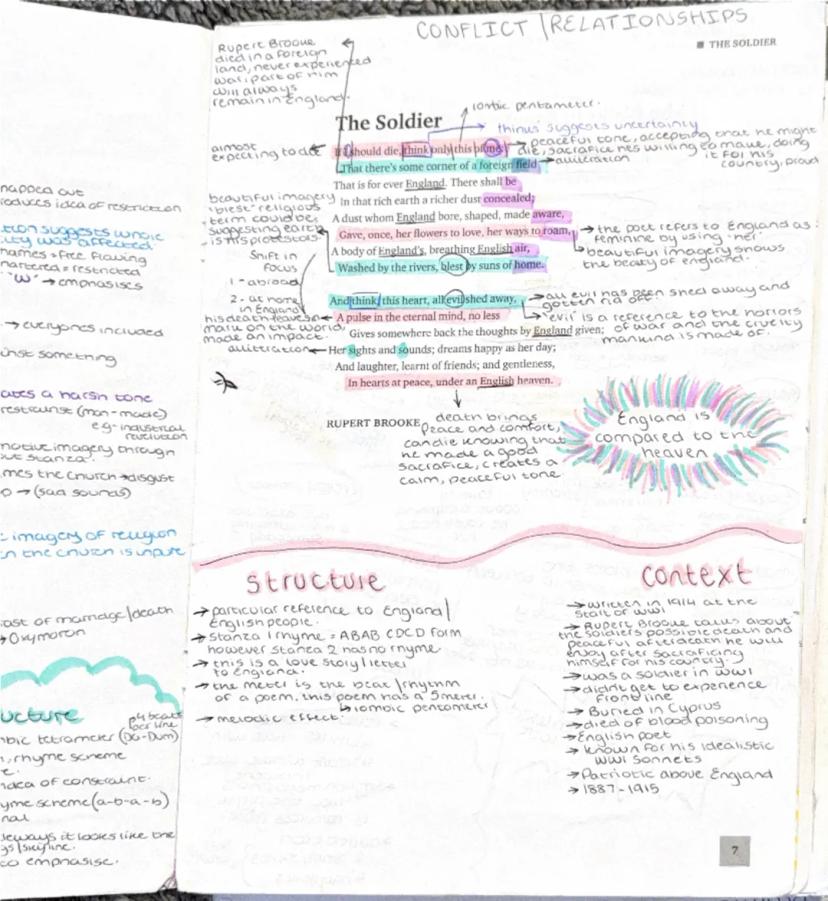 CONFLICT / RELATIONSHIPS
■ THE SOLDIER
Rupert Brooke
died in a foreign
land, never experienced
war, part of him
will always
remain in England.
iambic pentameter.
The Soldier
'think' suggests uncertainty
almost
expecting to die
If I should die, think only this of me:
peaceful tone, accepting that he might
die, sacrifice hes willing to make, doing
it for his
country, proud
That there's some corner of a foreign field
alliteration
That is for ever England. There shall be
beautiful imagery
'blest' religious
term could be
suggesting earth
is his protestors
In that rich earth a richer dust concealed;
A dust whom England bore, shaped, made aware,
Gave, once, her flowers to love, her ways to roam,
the poet refers to England as
feminine by using 'her'
beautiful imagery shows
the beauty of england.
A body of England's, breathing English air,
Washed by the rivers, blest by suns of home.
Shift in
focus
1 - abroad
2 - at home
in England
And think, this heart, all evil shed away,
all evil has been shed away and
gotten rid off.
'evil' is a reference to the horrors
of war and the cruelty
mankind is made of.
his death leaves a
mark on the world,
made an impact.
A pulse in the eternal mind, no less
Gives somewhere back the thoughts by England given;
alliteration
Her sights and sounds; dreams happy as her day;
And laughter, learnt of friends; and gentleness,
In hearts at peace, under an English heaven.
RUPERT BROOKE
death brings
peace and comfort,
can die knowing that
he made a good
sacrafice, creates a
calm, peaceful tone
England is
compared to the
heaven
Structure
→ particular reference to England/
English people.
→ Stanza 1 rhyme = ABAB CDCD form
however stanza 2 has no rhyme.
→ this is a love story/letter
to England.
→ the meter is the beat/rhythm
of a poem. this poem has a 5 meter.
iambic pentameter
→ melodic effect.
Context
→ written in 1914 at the
start of WW1
→ Rupert Brooke talks about
the soldiers possible death and
peaceful afterdeath he will
enjoy after sacraficing
himself for his country.
→ was a soldier in WW1
→ didn't get to experience
front line
→ Buried in Cyprus
→ died of blood poisoning
→ English poet
→ known for his idealistic
WW1 sonnets
→ Patriotic above England
→ 1887-1915
7
mapped out
roduces idea of restriction
tion suggests whole
city was affected
thames = free flowing
chartered = restricted
'W' → emphasises
→ everyones included
against something
ates a harsh tone
restraints (man-made)
e.g - industrial
revolution
emotive imagery through
out stanza.
mes the church → disgust
→ (sad sounds)
imagery of religion
church is impure
ast of marriage/death
→ Oxymoron
ucture
4 beats
per line
mbic tetrameter (DG-Dum)
rhyme scheme
idea of constraint.
yme scheme (a-b-a-b)
nal
sideways it looks like the
gs/skyline.
to emphasise.